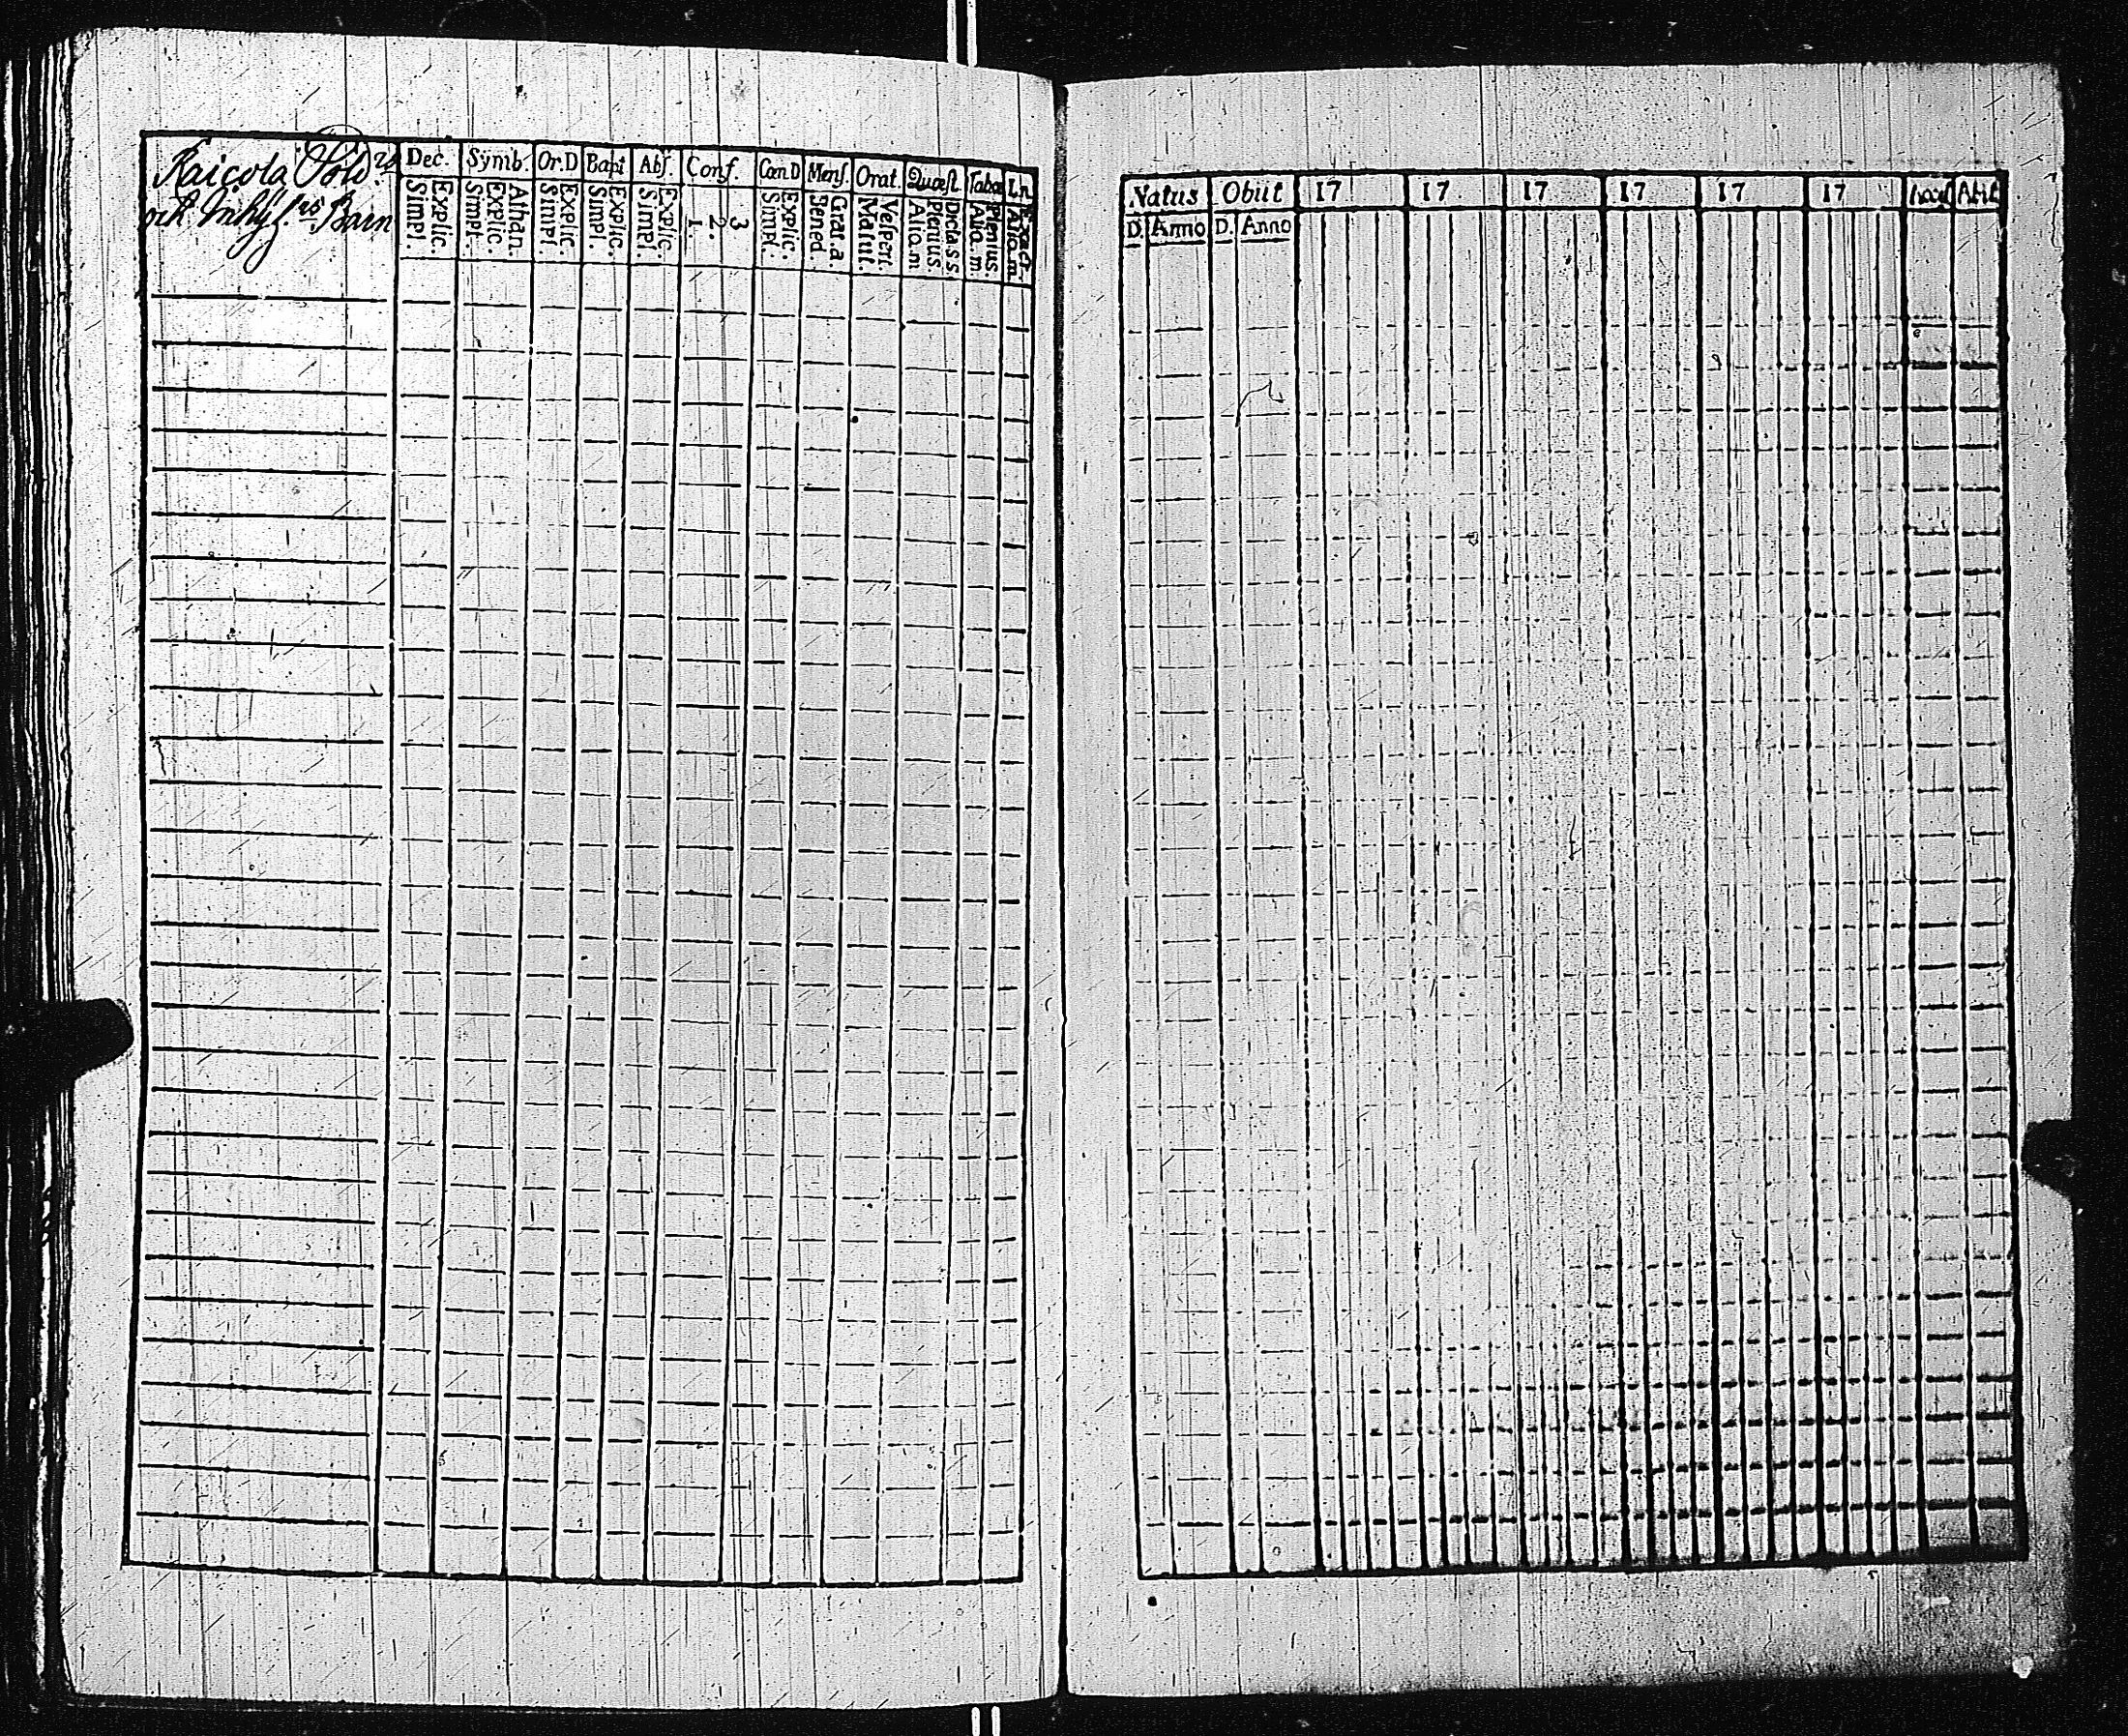 Raicola Sold.rs
och Inhys.rs Barn
Dec. Symb. Or.D Bapt Abs. Conf. Cœn D Mens. Orat. Quæst. Taba Ln
Explic. Simpl.
Athan. Explic. Simpl.
Explic. Simpl.
Explic. Simpl.
Explic. Simpl.
3 2. 1.
Explic. Simpl.
Grat. a. Bened.
Vesperi. Matut.
Dicta s.s. Plenius. Alia.m
Plenius. Alia m.
Exact. Alia m.
Natus Obiit 17 17 17 17 17 17 Acces Abiit
D. Anno D. Anno